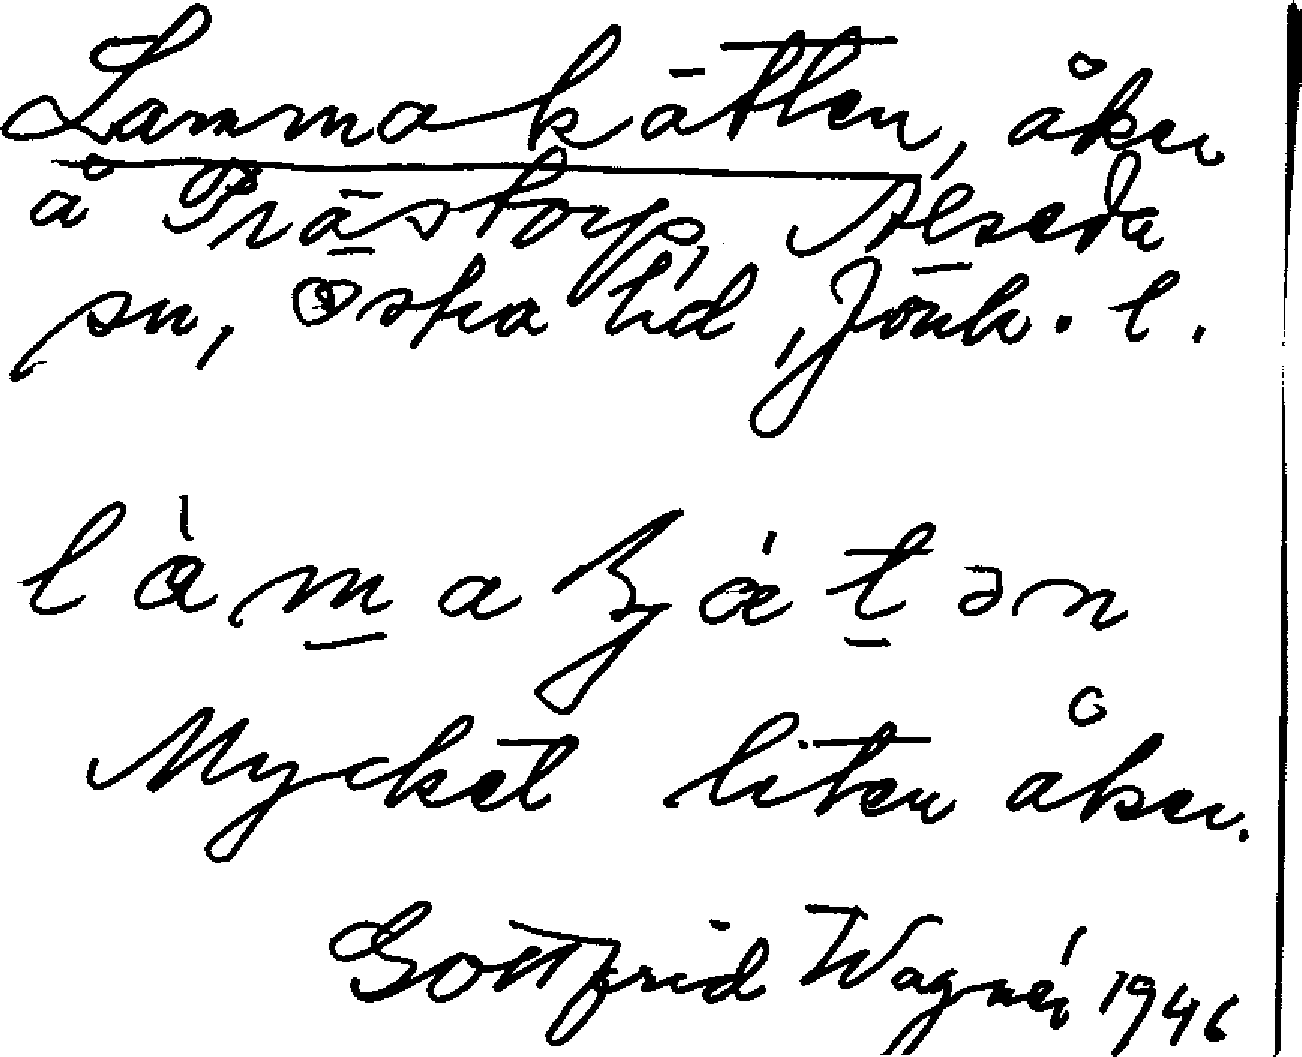 Lammakätten, åker
å Prästorp, Alseda
sn, Östra hd, Jönk. l.
Mycket liten åker.
Gottfrid Wagnér 1946